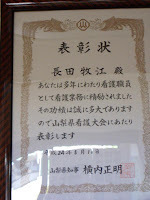 表彰状
長田牧江 殿
あなたは多年にわたり看護職員
として看護業務に精励されました
その功績は誠に多大であります
ので山梨県看護大会にあたり
表彰します
平成24年5月12日
山梨県知事 横内正明